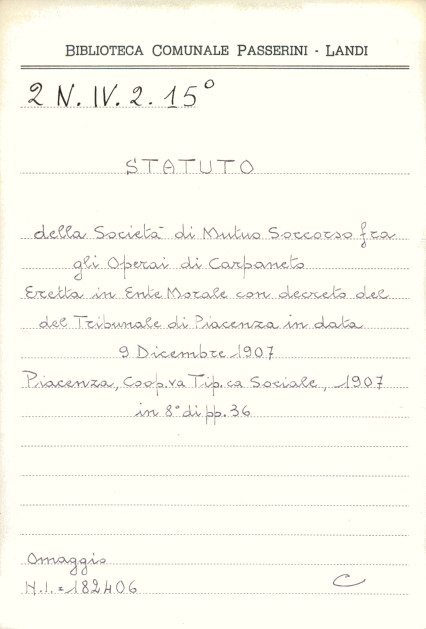 BIBLIOTECA COMUNALE PASSERINI - LANDI
2 N. IV. 2. 15°
STATUTO
della Società di Mutuo Soccorso fra
gli Operai di Carpaneto
Eretta in Ente Morale con decreto del
del Tribunale di Piacenza in data
9 Dicembre 1907
Piacenza, Coop.va Tip.ca Sociale, 1907
in 8° di pp. 36
Omaggio
N.I. = 182406
C